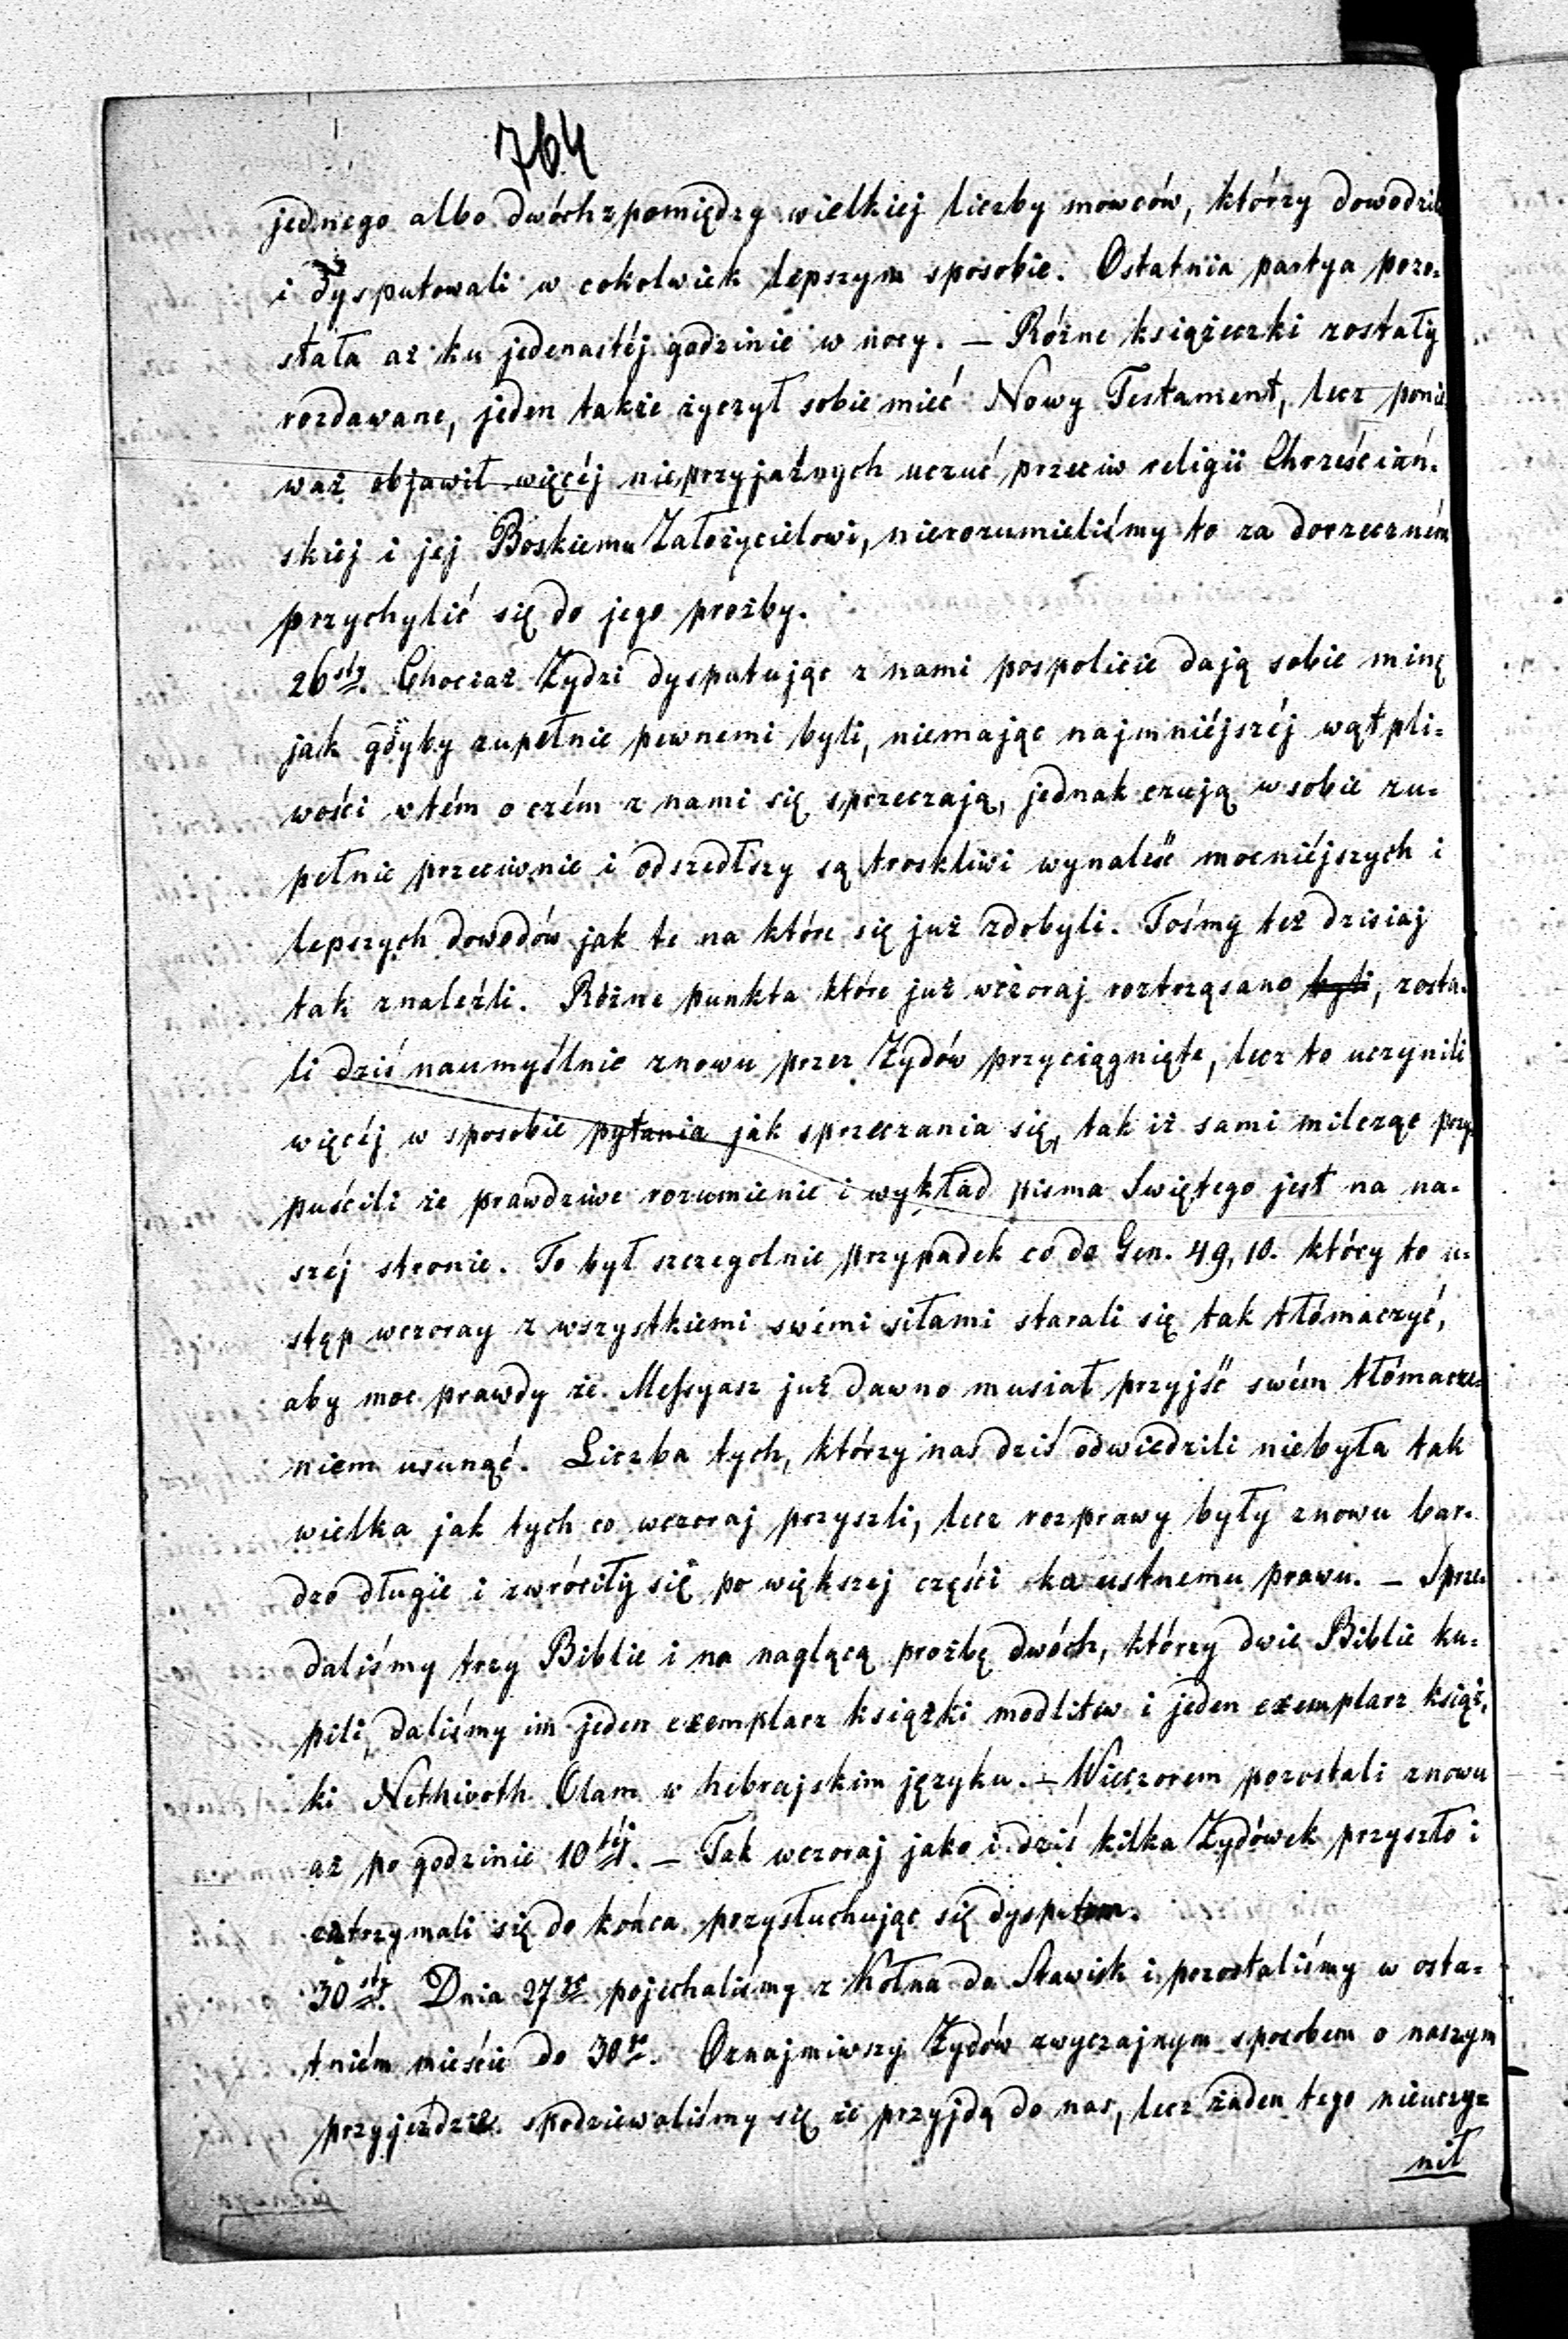 764
jednego albo dwóch zpomiędzy wielkiej liczby mowców, którzy dowodzili
i dysputowali w cokolwiek lepszym sposobie. Ostatnia partya pozo-
stała aż ku jedenastéj godzinie w nocy. — Różne książeczki zostały
rozdawane, jeden także życzył sobie mieć Nowy Testament, lecz ponie-
waż objawił więcéj nieprzyjaźnych uczuć przeciw religii Chrześciań-
skiej i jej Boskiemu Założycielowi, nierozumieliśmy to za dorzeczném
przychylić się do jego prożby.
26sty. Chociaż Żydzi dysputując z nami pospolicie dają sobie minę
jak gdyby zupełnie pewnemi byli, niemając najmniéjszéj wątpli-
wości w tém o czém z nami się sprzeczają, jednak czują w sobie zu-
pełnie przeciwnie i odszedłszy są troskliwi wynaleść mocniéjszych i
lepszych dowodów jak te na które się już zdobyli. Tośmy też dzisiaj
tak znaleźli. Różne punkta które już wczoraj roztrząsano byli, zosta-
li dziś naumyślnie znowu przez Żydów przyciągnięte, lecz to uczynili
więcéj w sposobie pytania jak sprzeczania się, tak iż sami milcząc przy-
puścili że prawdziwe rozumienie i wykład pisma Swiętego jest na na-
széj stronie. To był szczegolnie przypadek co do Gen. 49, 10. który to u-
stęp wczoray z wszystkiemi swémi siłami starali się tak tłómaczyć,
aby moc prawdy że Messyasz już dawno musiał przyjść swém tłómacze-
niem usunąć. Liczba tych, którzy nas dziś odwiedzili niebyła tak
wielka jak tych co wczoraj przyszli, lecz rozprawy były znowu bar-
dzo długie i zwróciły się po większej części ku ustnemu prawu. — Sprze-
daliśmy trzy Biblie i na naglącą prożbę dwóch, którzy dwie Biblie ku-
pili, daliśmy im jeden exemplarz książki modlitew i jeden exemplarz książ-
ki Nethivoth Olam w hebrajskim języku. — Wieczorem pozostali znowu
aż po godzinie 10téj. — Tak wczoraj jako i dziś kilka Żydówek przyszło i
zatrzymali się do końca przysłuchując się dysputom.
30sty. Dnia 27go pojechaliśmy z Kolna do Stawisk i pozostaliśmy w osta-
tniém mieście do 30go. Oznajmiwszy Żydów zwyczajnym sposobem o naszym
przyjeździe spodziewaliśmy się że przyjdą do nas, lecz żaden tego nieuczy-
nił